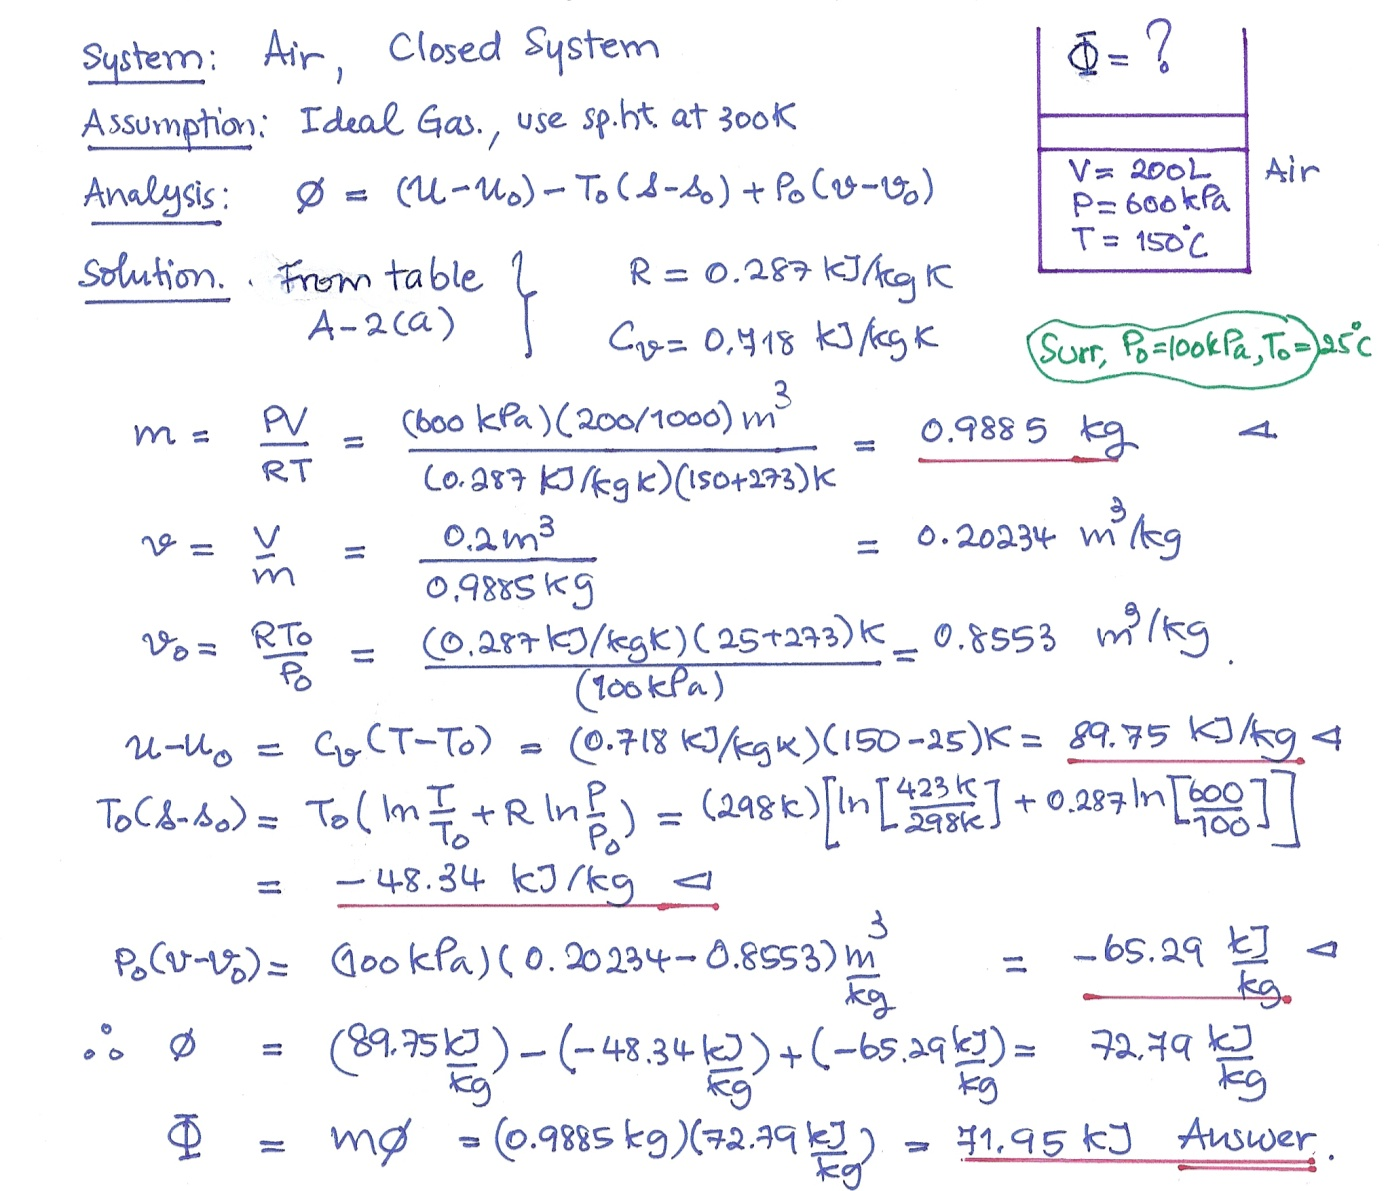 System: Air, Closed System
Assumption: Ideal Gas., use sp.ht. at 300K
Analysis: ø = (u-u₀) - T₀(s-s₀) + P₀(v-v₀)
Solution. . From table A-2(a) } R = 0.287 kJ/kg K
Cv = 0.718 kJ/kg K
Φ = ?
V = 200L
P = 600 kPa
T = 150°C
Air
Surr, P₀=100kPa, T₀=25°C
m = PV/RT = (600 kPa)(200/1000) m³ / (0.287 kJ/kg K)(150+273)K = 0.9885 kg ◁
v = V/m = 0.2m³ / 0.9885 kg = 0.20234 m³/kg
v₀ = RT₀/P₀ = (0.287 kJ/kg K)(25+273)K / (100 kPa) = 0.8553 m³/kg.
u-u₀ = Cv(T-T₀) = (0.718 kJ/kg K)(150-25)K = 89.75 kJ/kg ◁
T₀(s-s₀) = T₀(ln T/T₀ + R ln P/P₀) = (298K)[ln[423K/298K] + 0.287 ln[600/100]]
= -48.34 kJ/kg ◁
P₀(v-v₀) = (100 kPa)(0.20234-0.8553) m³/kg = -65.29 kJ/kg. ◁
∴ ø = (89.75 kJ/kg) - (-48.34 kJ/kg) + (-65.29 kJ/kg) = 72.79 kJ/kg
Φ = mø = (0.9885 kg)(72.79 kJ/kg) = 71.95 kJ Answer.